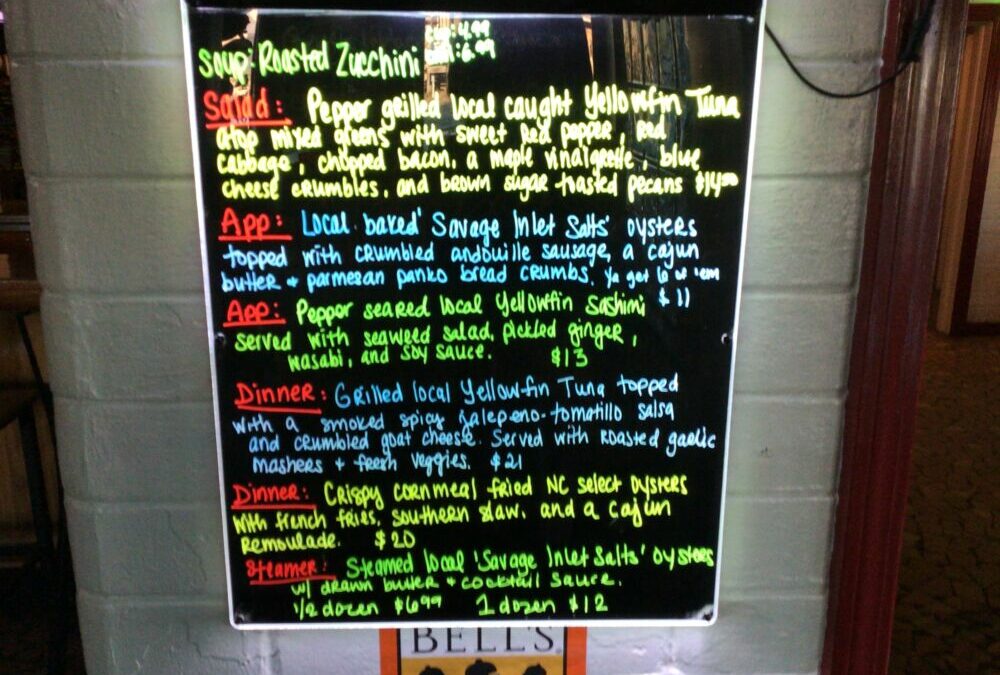 Soup: Roasted Zucchini cup: 4.99
bowl: 6.99
Salad: Pepper grilled local caught Yellowfin Tuna
atop mixed greens with sweet red pepper, red
cabbage, chopped bacon, a maple vinaigrette, blue
cheese crumbles, and brown sugar toasted pecans $14.00
App: Local baked 'Savage Inlet Salts' oysters
topped with crumbled andouille sausage, a cajun
butter + parmesan panko bread crumbs. Ya get 6 of 'em
$11
App: Pepper seared local Yellowfin Sashimi
served with seaweed salad, pickled ginger,
wasabi, and soy sauce. $13
Dinner: Grilled local Yellowfin Tuna topped
with a smoked spicy jalepeno-tomatillo salsa
and crumbled goat cheese. Served with roasted garlic
mashers + fresh veggies. $21
Dinner: Crispy cornmeal fried NC select oysters
with french fries, southern slaw, and a cajun
remoulade. $20
Steamer: Steamed local 'Savage Inlet Salts' oysters
w/ drawn butter + cocktail sauce.
1/2 dozen $6.99 1 dozen $12
BELL'S